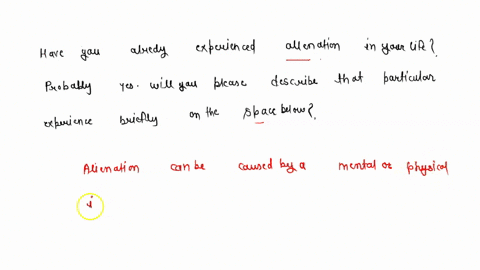 Have you alredy experienced alienation in your life?
Probably yes. will you please describe that particular
experience briefly on the space below?
Alienation can be caused by a mental or physical
i